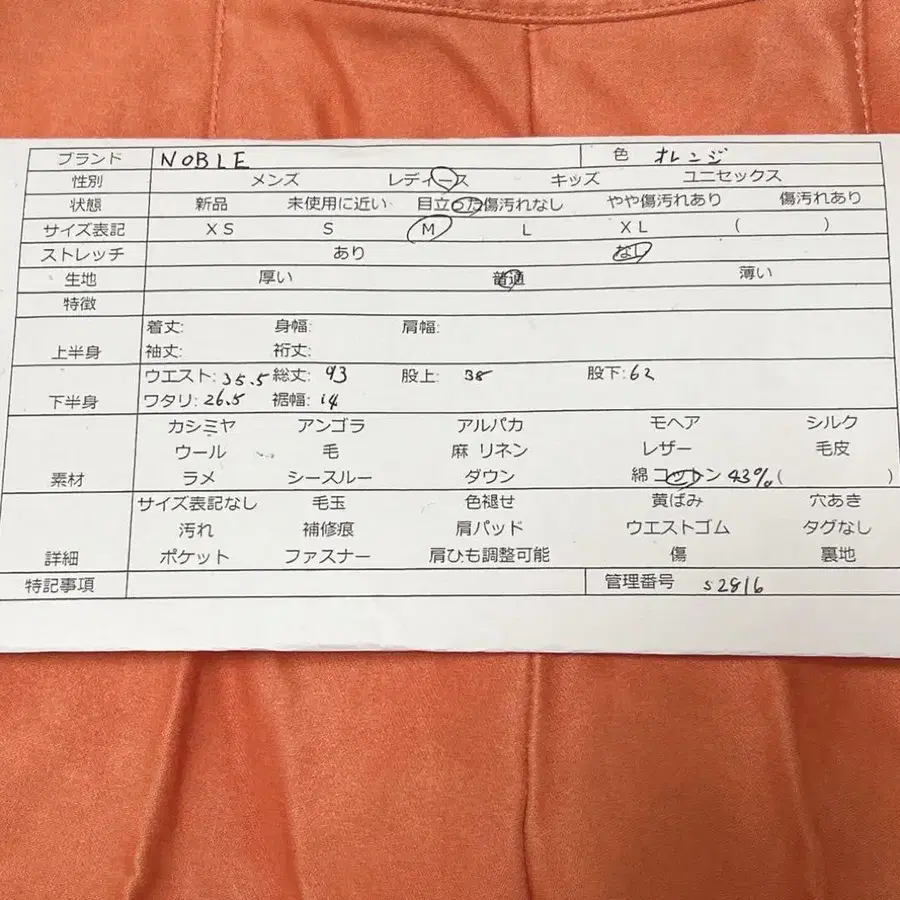 ブランド NOBLE 色 オレンジ
性別 メンズ レディース キッズ ユニセックス
状態 新品 未使用に近い 目立った傷汚れなし やや傷汚れあり 傷汚れあり
サイズ表記 XS S M L XL ( )
ストレッチ あり なし
生地 厚い 普通 薄い
特徴
着丈: 身幅: 肩幅:
上半身 袖丈: 裄丈:
ウエスト: 35.5 総丈: 93 股上: 38 股下: 62
下半身 ワタリ: 26.5 裾幅: 14
カシミヤ アンゴラ アルパカ モヘア シルク
ウール 毛 麻 リネン レザー 毛皮
素材 ラメ シースルー ダウン 綿 コットン 43% ( )
サイズ表記なし 毛玉 色褪せ 黄ばみ 穴あき
汚れ 補修痕 肩パッド ウエストゴム タグなし
詳細 ポケット ファスナー 肩ひも調整可能 傷 裏地
特記事項 管理番号 S2816